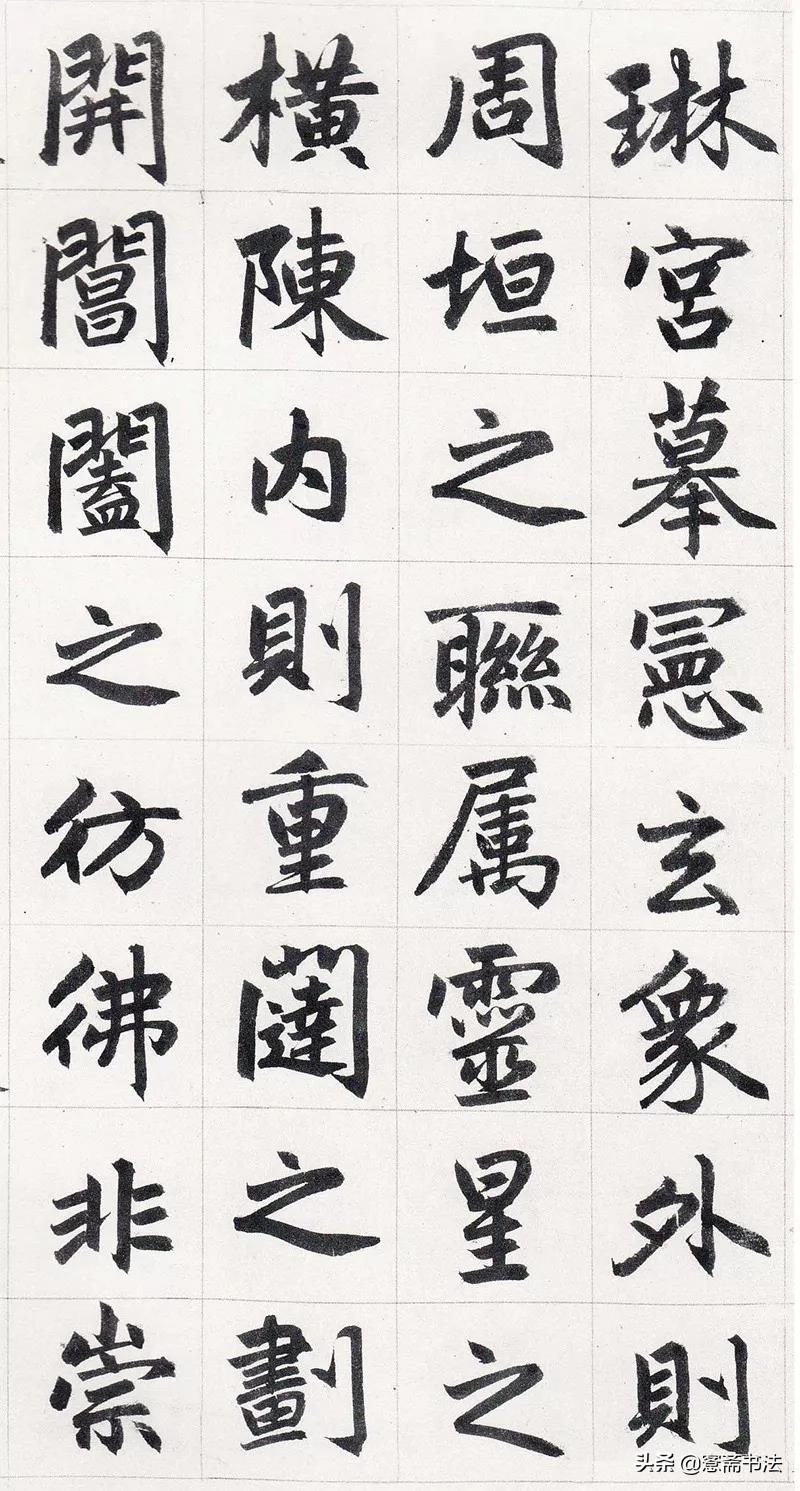 琳宮摹憲玄象外則
周垣之聯属靈星之
横陳内則重闥之劃
開閶闔之彷彿非崇
头条 @斋书法